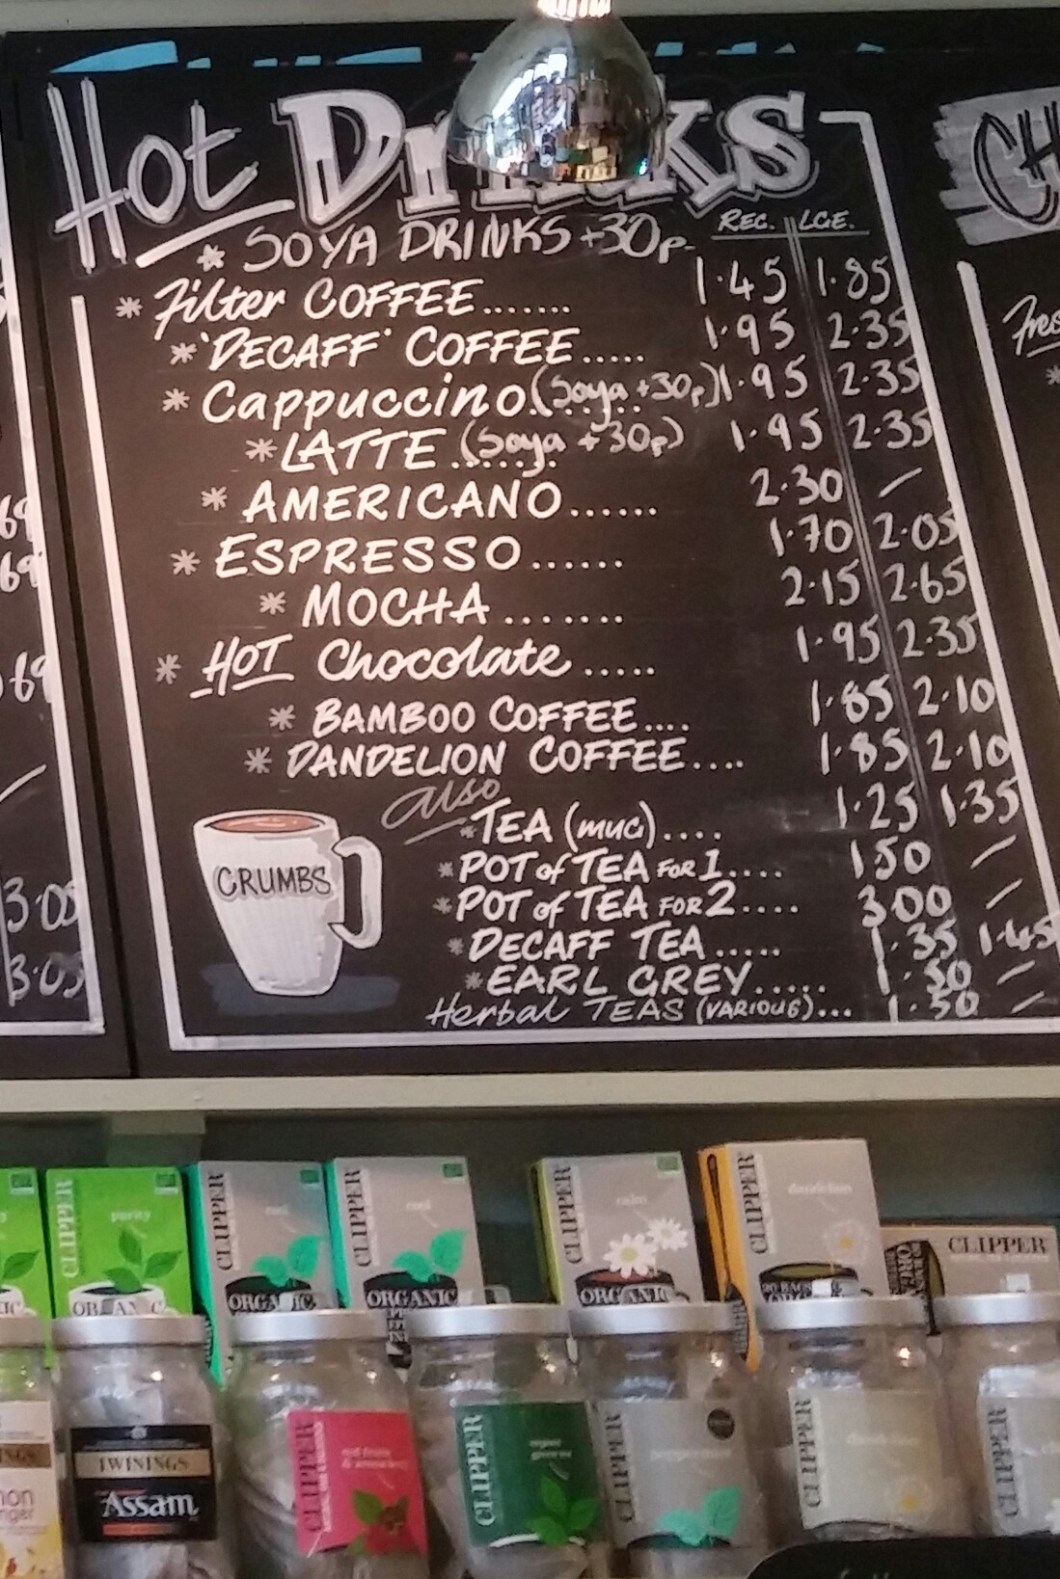 Hot Drinks
REG. LGE.
* SOYA DRINKS +30p-
* Filter COFFEE....... 1·45 1·85
* 'DECAFF' COFFEE..... 1·95 2·35
* Cappuccino (Soya +30p) 1·95 2·35
* LATTE (Soya +30p) 1·95 2·35
* AMERICANO...... 2·30 –
* ESPRESSO...... 1·70 2·05
* MOCHA....... 2·15 2·65
* HOT Chocolate..... 1·95 2·35
* BAMBOO COFFEE.... 1·85 2·10
* DANDELION COFFEE.... 1·85 2·10
also
* TEA (MUG).... 1·25 1·35
* POT of TEA FOR 1.... 1·50 –
* POT of TEA FOR 2.... 3·00 –
* DECAFF TEA..... 1·35 1·45
* EARL GREY..... 1·50 –
Herbal TEAS (VARIOUS)... 1·50 –
CRUMBS
CH
Fres
69
69
69
3·05
3·05
CLIPPER purity ORGANIC
CLIPPER ORGANIC
CLIPPER ORGANIC
CLIPPER calm ORGANIC
CLIPPER dandelion 20 BAGS
CLIPPER
TWININGS
Assam
CLIPPER
CLIPPER
CLIPPER
CLIPPER
CLIPPER